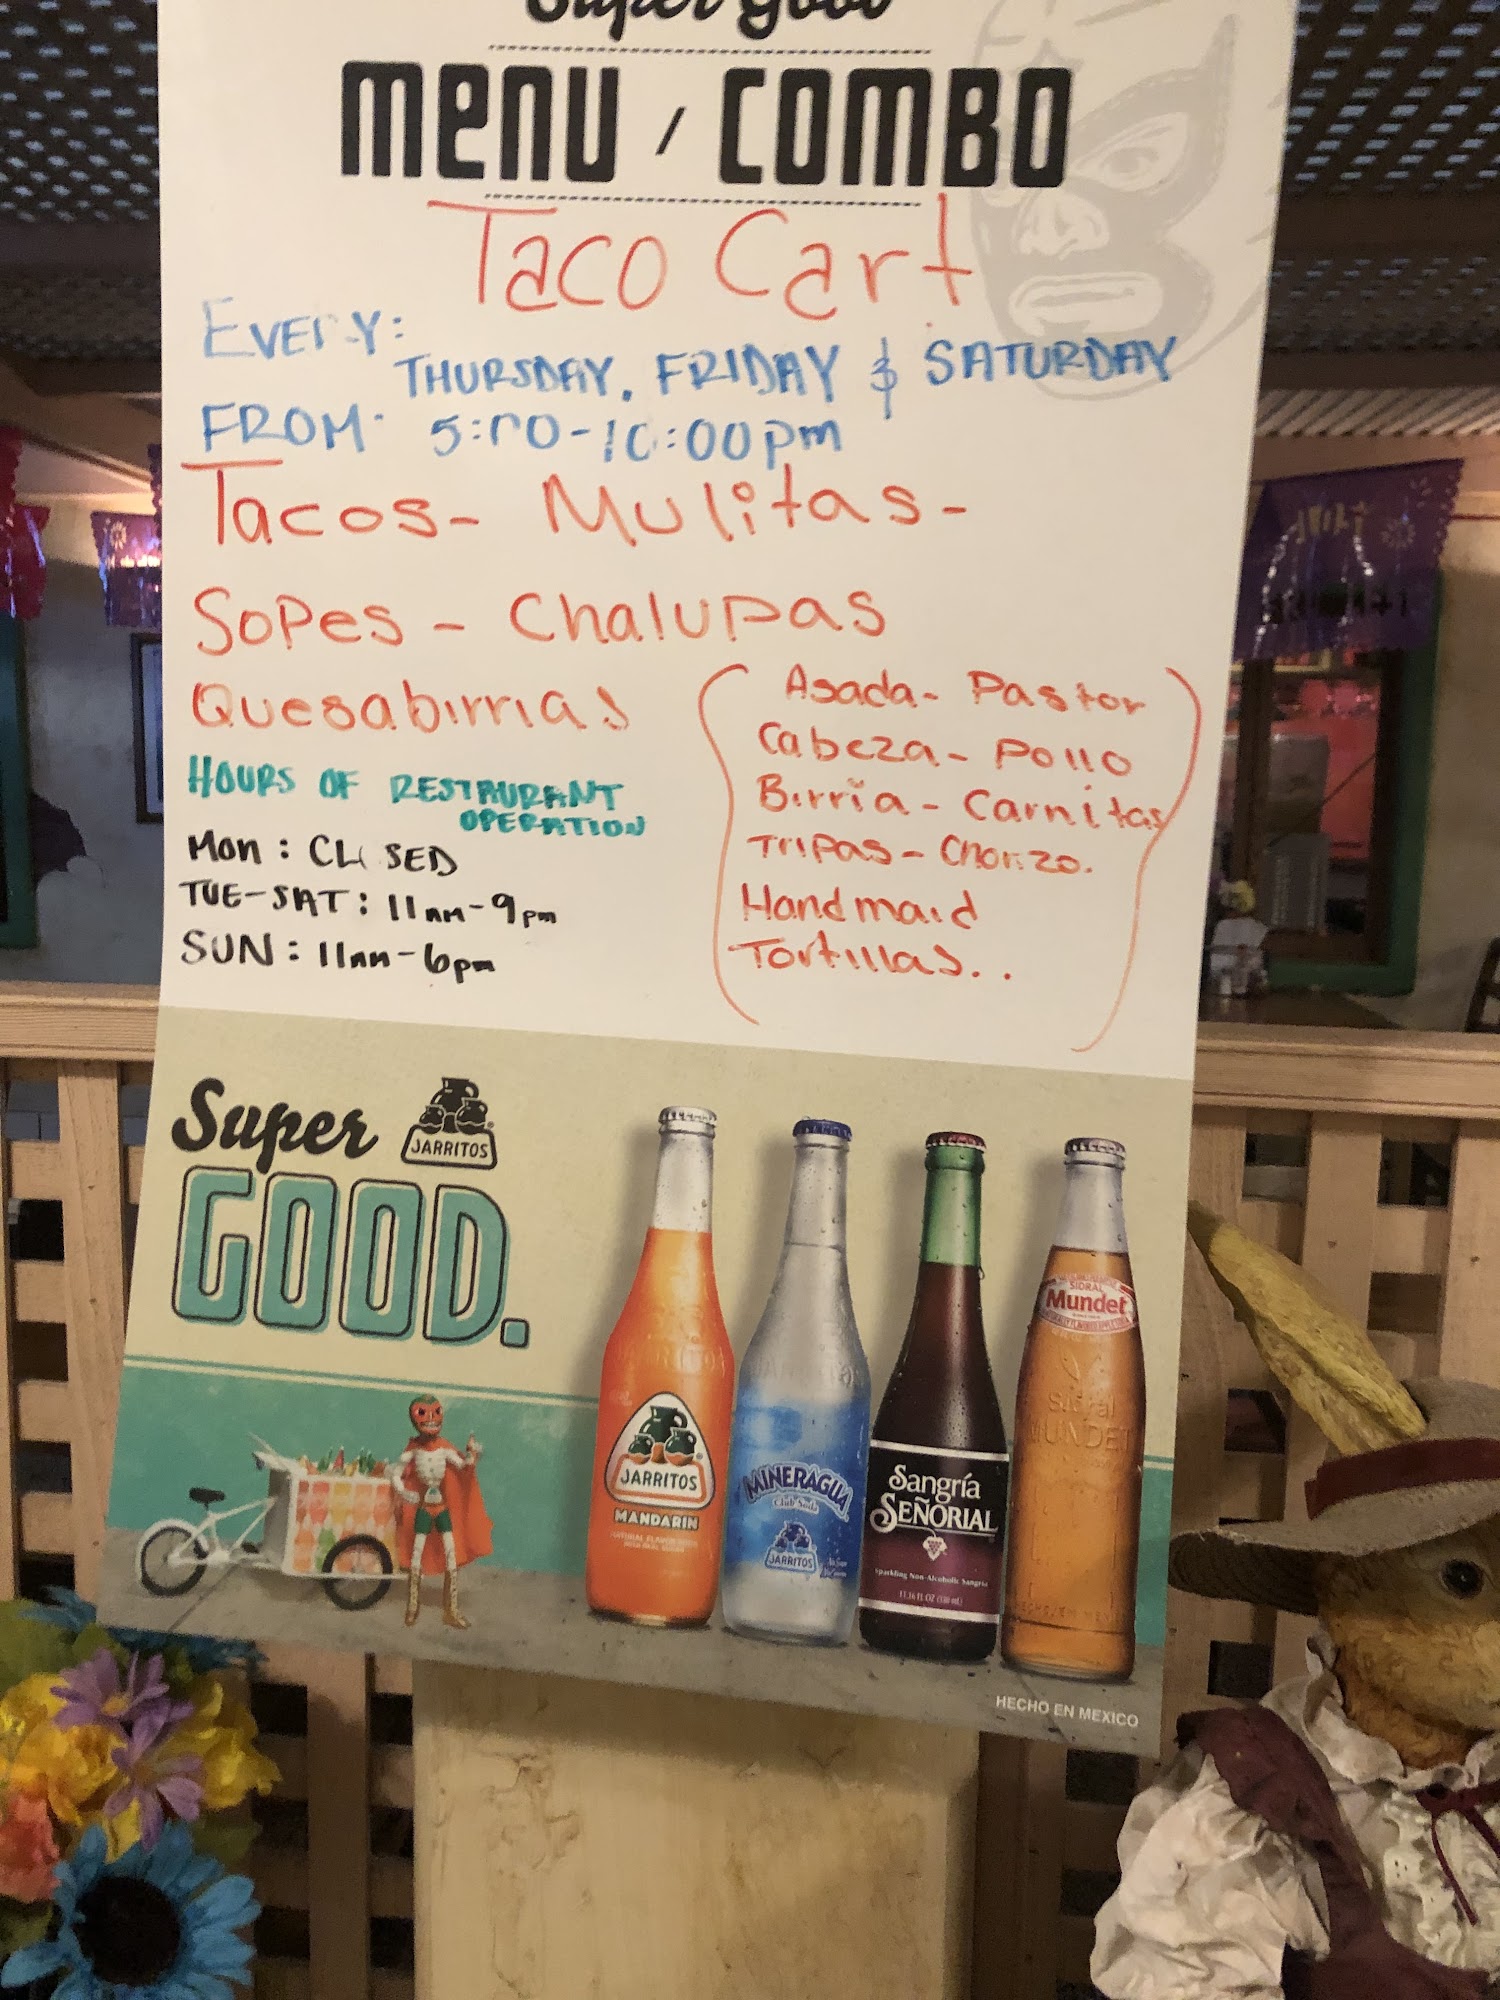 Super Good
MENU / COMBO
Taco Cart
EVERY:
THURSDAY, FRIDAY & SATURDAY
FROM: 5:00-10:00pm
Tacos- Mulitas-
Sopes - Chalupas
Quesabirrias
Asada- Pastor
Cabeza- Pollo
Birria - Carnitas
Tripas - Chorizo.
Handmaid
Tortillas..
HOURS OF RESTAURANT
OPERATION
Mon: CLOSED
TUE-SAT: 11AM-9pm
SUN: 11AM-6pm
Super
JARRITOS
GOOD.
JARRITOS
MANDARIN
MINERAGUA
Club Soda
JARRITOS
Sangría
SEÑORIAL
Sparkling Non-Alcoholic Sangria
11.16 FL OZ (330 ml)
SIDRAL
Mundet
Sidral
MUNDET
HECHO EN MEXICO